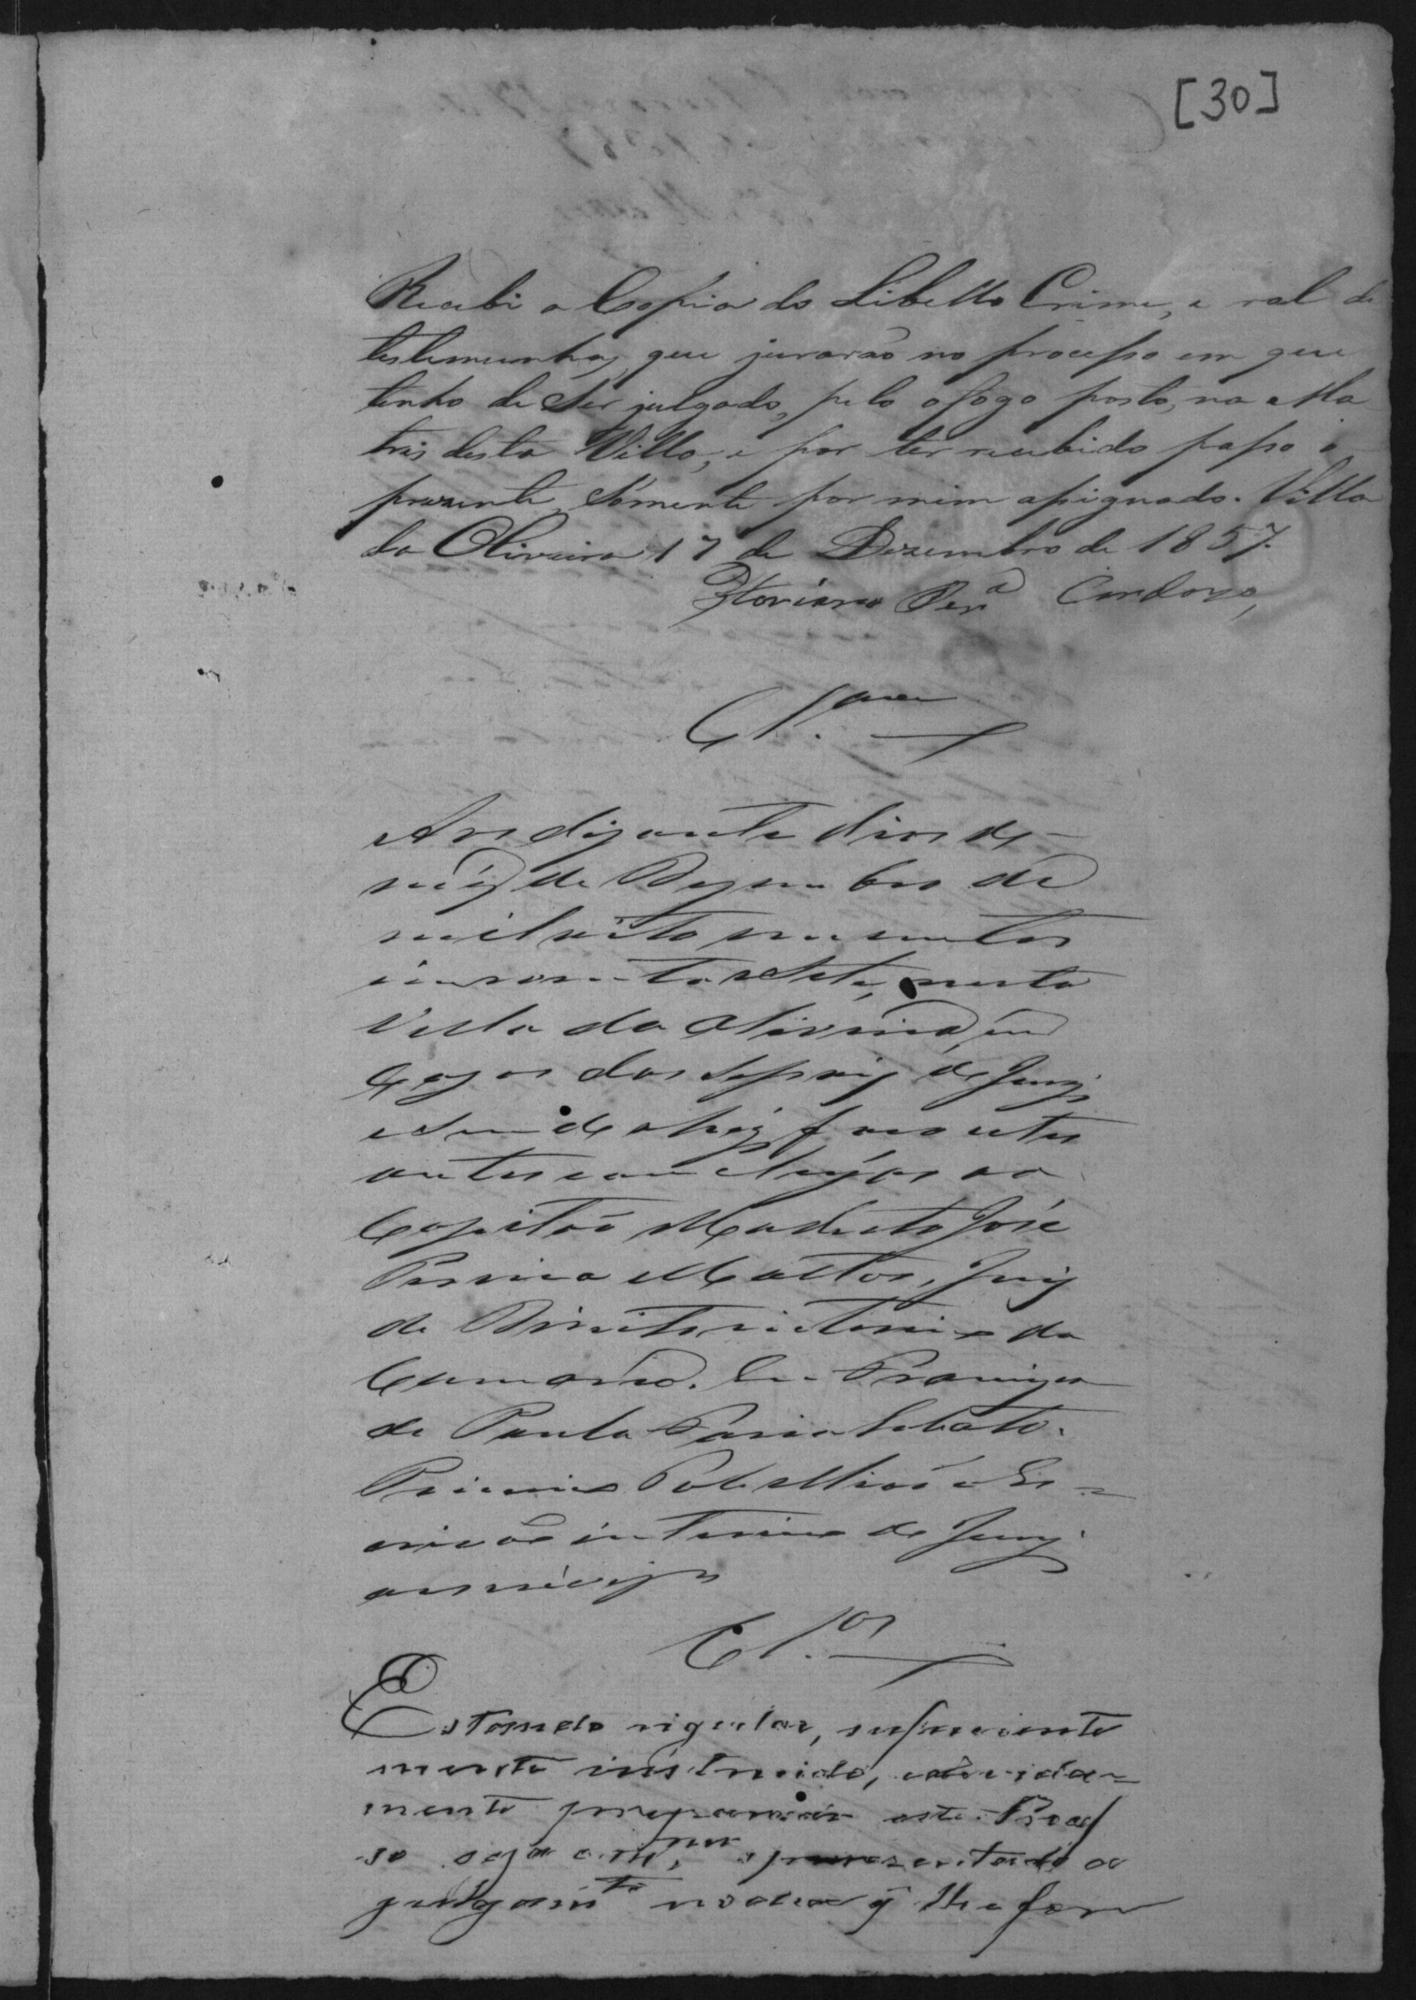 [30]
Recebi a Copia do Libello Crime, e rol de
testemunhas, que jurarão no processo em que
tenho de ser julgado, pelo o fogo posto, na Ma
tris desta Villa, e por ter recebido passo o
prezente, sómente por mim assignado. Villa
da Oliveira 17 de Dezembro de 1857.
Floriano Per.ª Cardozo,
Cl.
Aos dezanete dias do
mez de Dezembro de
mil oito cemtos
sincoenta e Sete, nesta
Villa da Oliveira, em
Cazas das Sessoens do Jury
e sendo ahi, faço estes
autos concluzos ao
Capitão Modesto José
Pereira Mattos, Juiz
de Direito interino da
Comarca. Eu Francisco
de Paula Faria Lobato
Primeiro Tabellião e Es=
crivão interino do Jury
o escrevi
Cl.os
Estando regular, suficiente
mente instruido, e devida=
mente preparado este Proces
so seja apresentado ao
julgam.to na caza q̃ lhe for